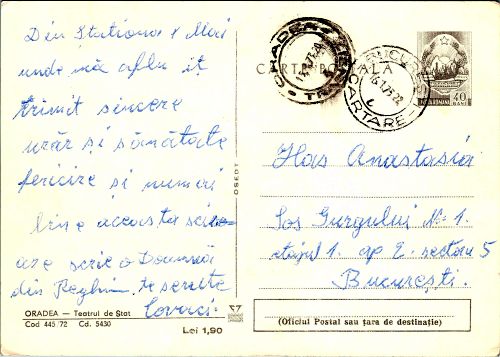 Din Stațiunea 1 Mai
unde mă aflu îț
trimit sincere
urări și sănătate
fericire și numai
bine această scri
are scrie o Doamnă
din Reghin, te
Covaci
ORADEA — Teatrul de Stat
Cod 445/72 Cd. 5430
Lei 1,90
OSETT
CARTE POȘTALĂ
ORADEA
TRANZIT
BUCUREȘTI
CARTARE
40
BANI
Has Anastasia
Șos Giurgului No 1.
etajul 1. ap 2. sectoru 5
București.
(Oficiul Postal sau țara de destinație)